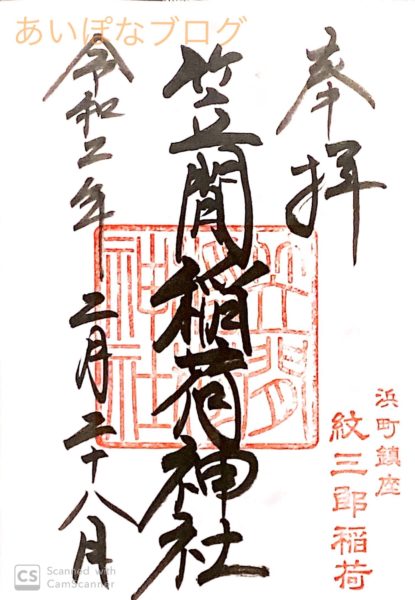 あいぽなブログ
奉拝
笠間稲荷神社
令和二年 二月二十八日
笠間
稲荷
神社
浜町鎮座
紋三郎稲荷
CS Scanned with
CamScanner